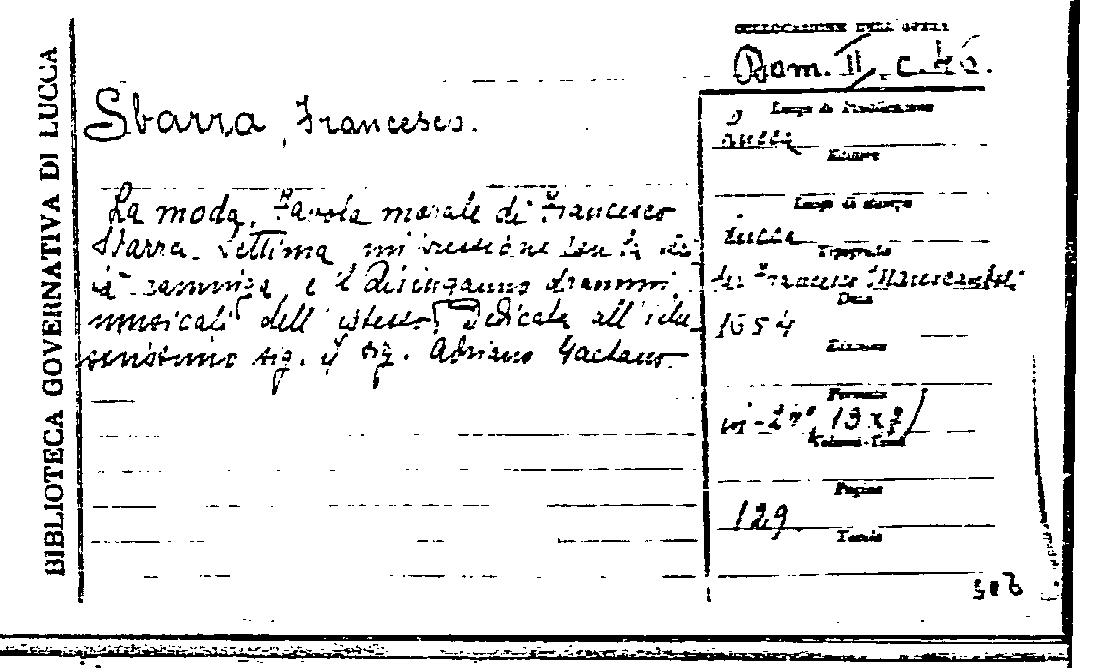 BIBLIOTECA GOVERNATIVA DI LUCCA
COLLOCAZIONE DELL'OPERA
Bam. II. c. 46.
Sbarra, Francesco.
La moda, Favola morale di Francesco
Sbarra. Settima impressione con la
tirannide, e il Disinganno drammi
musicali dell'istesso, Dedicate all'illu
strissimo sig. il sig. Adriano Gaetano
Luogo di Pubblicazione
Lucca
Editore
Luogo di stampa
Lucca
Tipografo
per Francesco Marescandoli
Data
1654
Edizione
Formato
in-24° (13x7)
Volumi-Tomi
Pagine
129
Tavole